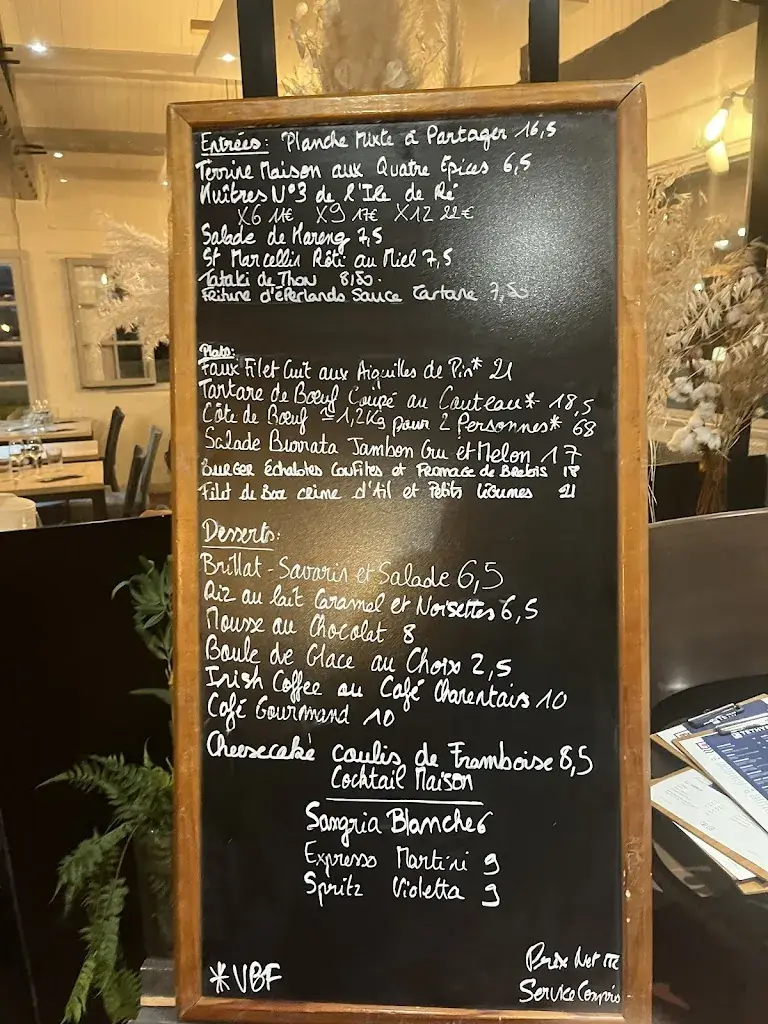 Entrées: Planche Mixte à Partager 16,5
Terrine Maison aux Quatre Epices 6,5
Huîtres N°3 de l'Ile de Ré
X6 11€ X9 17€ X12 22€
Salade de Hareng 7,5
St Marcellin Rôti au Miel 7,5
Tataki de Thon 8,50.
Friture d'éperlands Sauce Tartare 7,50
Plats:
Faux Filet Cuit aux Aiguilles de Pin* 21
Tartare de Bœuf Coupé au Couteau* 18,5
Côte de Boeuf ≃ 1,2Kg pour 2 Personnes* 68
Salade Burrata Jambon Cru et Melon 17
Burger échalotes Confites et Fromage de Brebis 18
Filet de Bar crème d'Ail et Petits légumes 21
Desserts:
Brillat-Savarin et Salade 6,5
Riz au lait Caramel et Noisettes 6,5
Mousse au Chocolat 8
Boule de Glace au Choix 2,5
Irish Coffee ou Café Charentais 10
Café Gourmand 10
Cheesecake coulis de Framboise 8,5
Cocktail Maison
Sangria Blanche 6
Expresso Martini 9
Spritz Violetta 9
*VBF
Prix Net
Service Compris